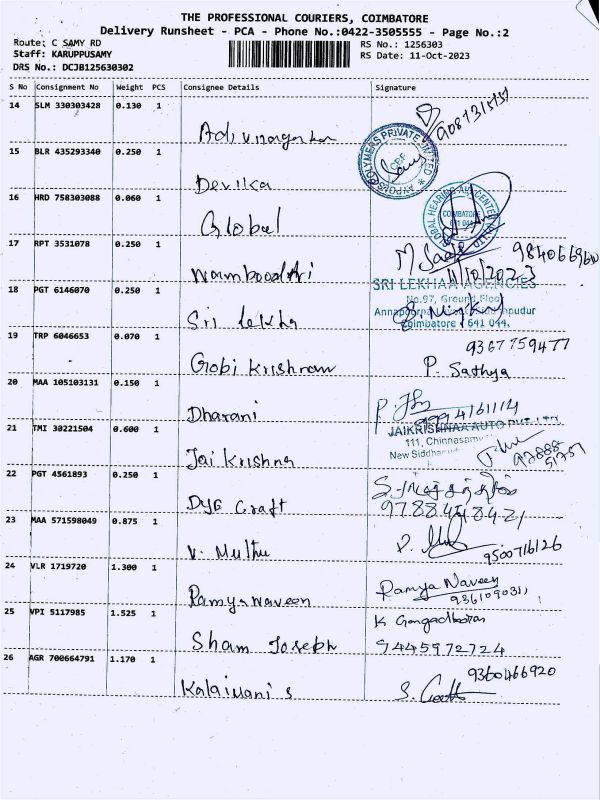 THE PROFESSIONAL COURIERS, COIMBATORE
Delivery Runsheet - PCA - Phone No.:0422-3505555 - Page No.:2
Route: C SAMY RD
Staff: KARUPPUSAMY
DRS No.: DCJB125630302
RS No.: 1256303
RS Date: 11-Oct-2023
S No Consignment No Weight PCS Consignee Details Signature
14 SLM 330303428 0.130 1
15 BLR 435293340 0.250 1
Devika
16 HRD 758303088 0.060 1
Global
COIMBATORE
641 044
17 RPT 3531078 0.250 1
11/10/2023
18 PGT 6146070 0.250 1
Sri lekha
SRI LEKHAA AGENCIES
No.97, Ground Floor
Coimbatore - 641 044.
19 TRP 6046653 0.070 1
Gobi Krishnan
9367759477
P. Sathya
20 MAA 105103131 0.150 1
Dharani
9994161114
21 TMI 30221504 0.600 1
Jai Krishna
JAIKRISHNAA AUTO
111, Chinnasamy
22 PGT 4561893 0.250 1
23 MAA 571598049 0.875 1
V. Muthu
9500716126
24 VLR 1719720 1.300 1
Ramya naveen
Ramya Naveen
25 VPI 5117985 1.525 1
Sham Joseph
K Gangadharan
9445972724
26 AGR 700664791 1.170 1
Kalaivani s
9360466920